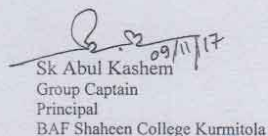 09/11/17
Sk Abul Kashem
Group Captain
Principal
BAF Shaheen College Kurmitola